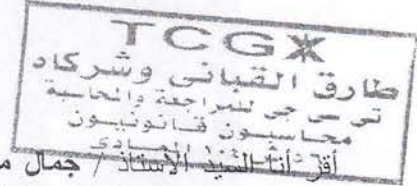 TCGX
طارق القبانى وشركاه
تى سى جى للمراجعة والمحاسبة
محاسبون قانونيون
أقر أنا السيد الأستاذ / جمال